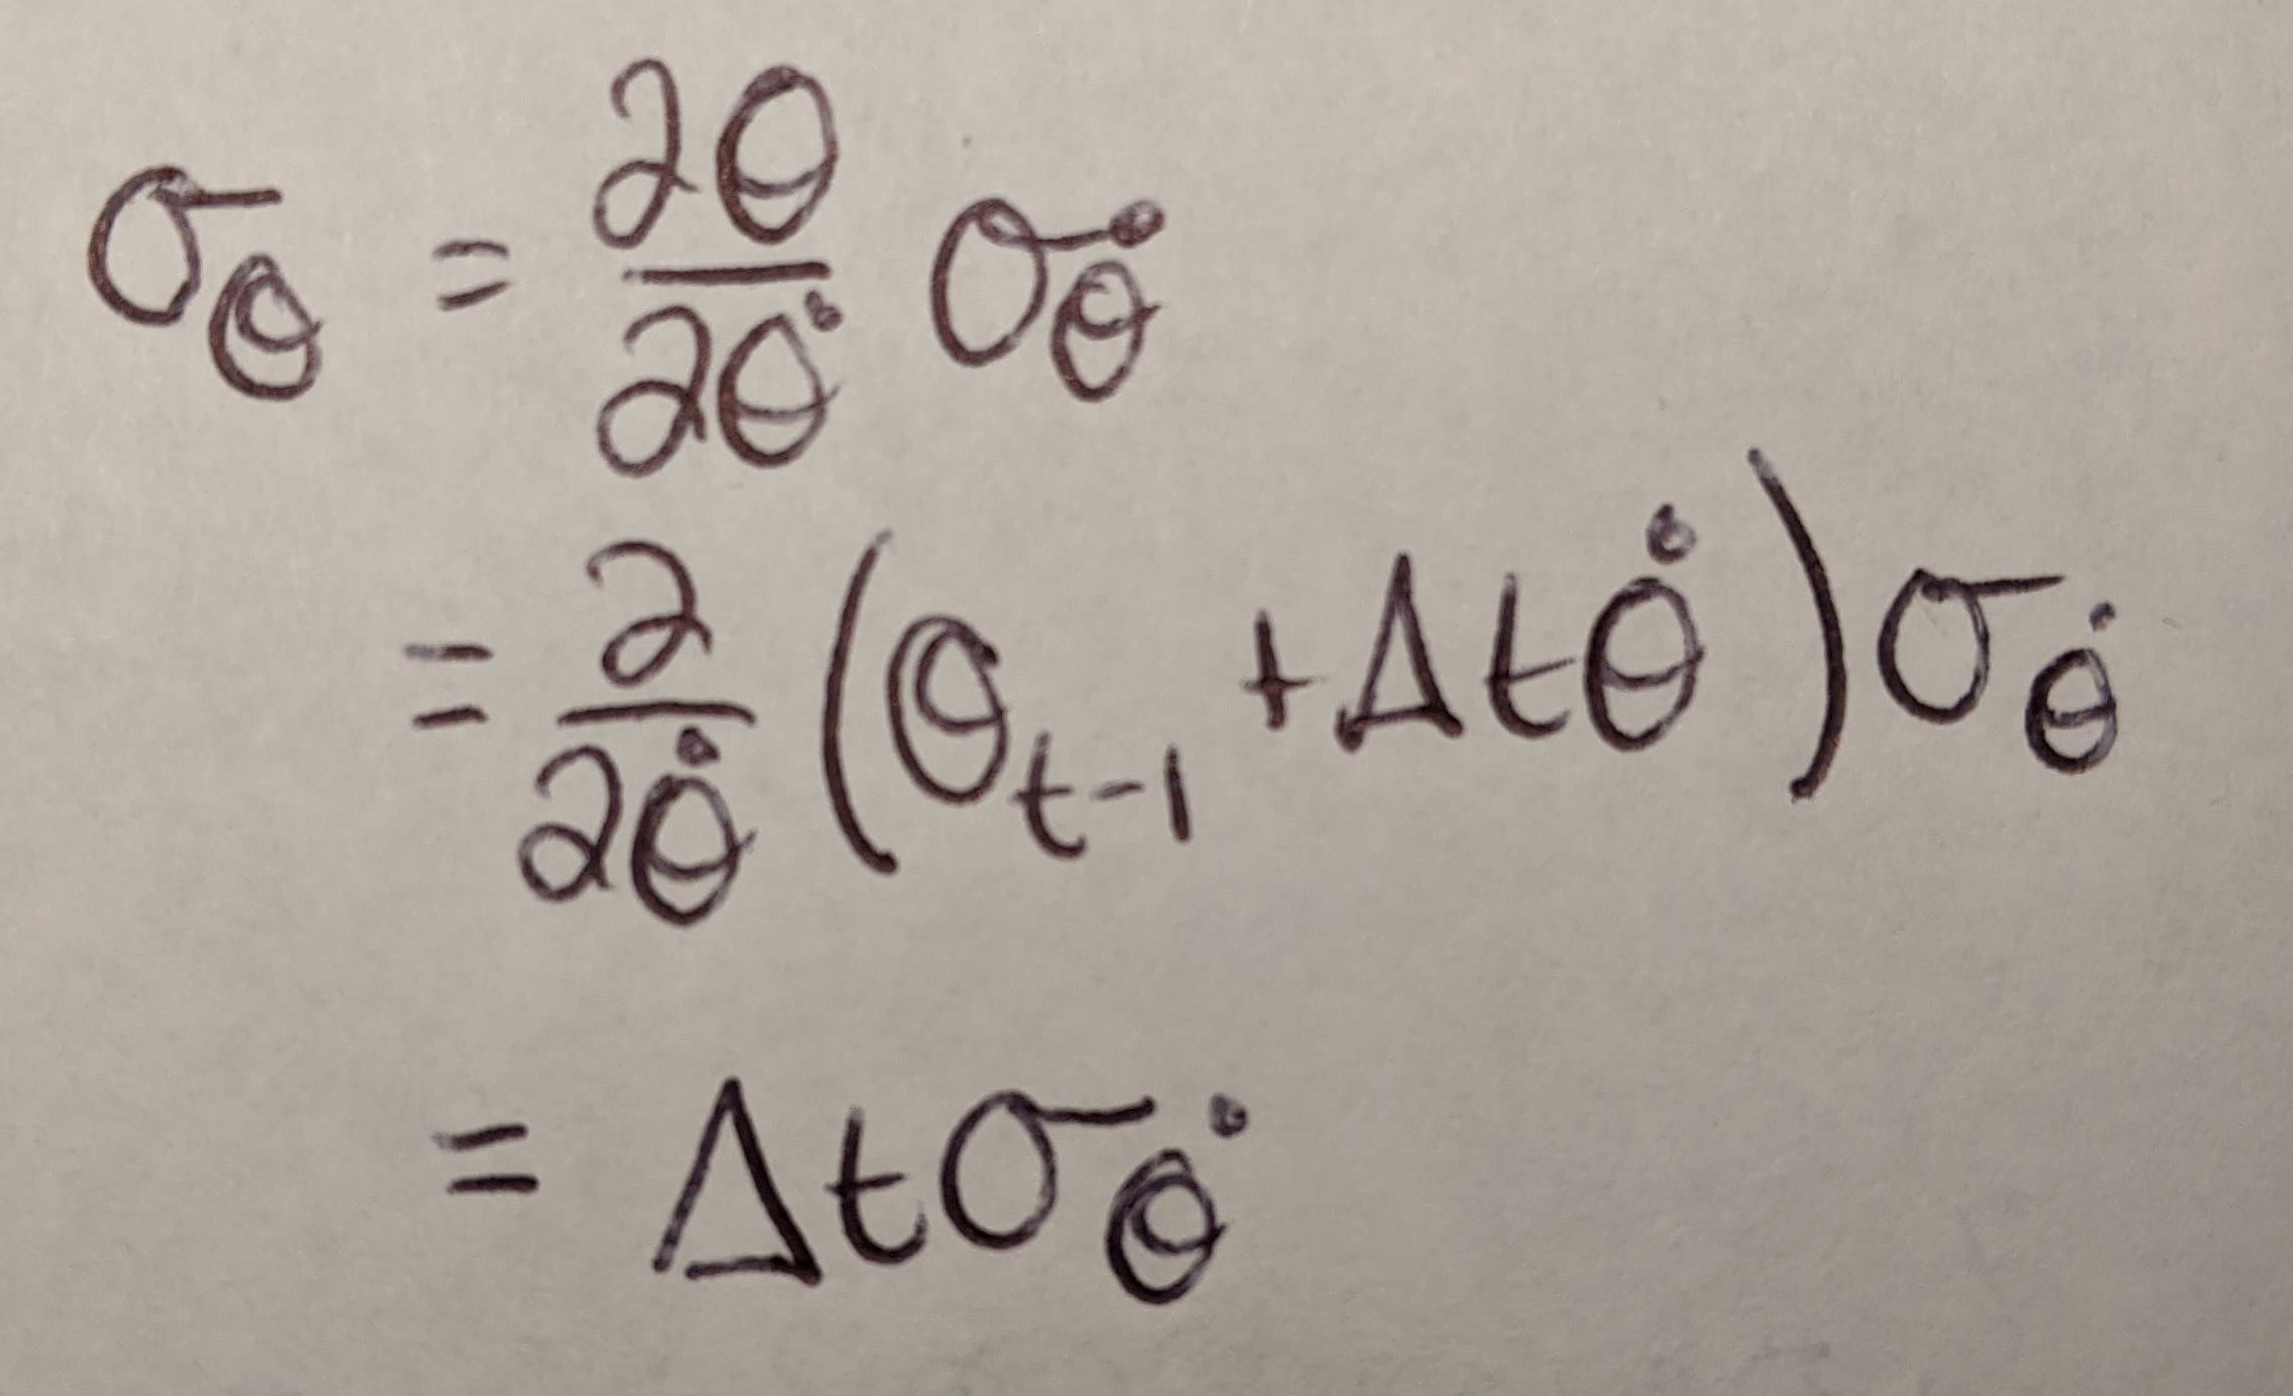 σ_θ = ∂θ/∂θ̇ σ_θ̇
= ∂/∂θ̇ (θ_{t-1} + Δtθ̇)σ_θ̇
= Δtσ_θ̇